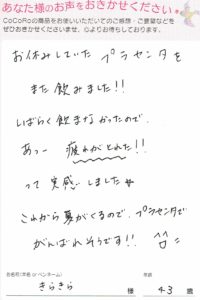 あなた様のお声をおきかせください
CoCoRoの商品をお使いいただいてのご感想・ご要望などを
ぜひお聞かせくださいませ。心よりお待ちしております。
お休みしていた プラセンタを
また飲みました!!
しばらく飲まなかったので、
あっー 疲れがとれた!!
って実感しました
これから夏がくるので、プラセンタで
がんばれそうです!!
お名前(本名 or ペンネーム)
年齢
きらきら 様 43 歳